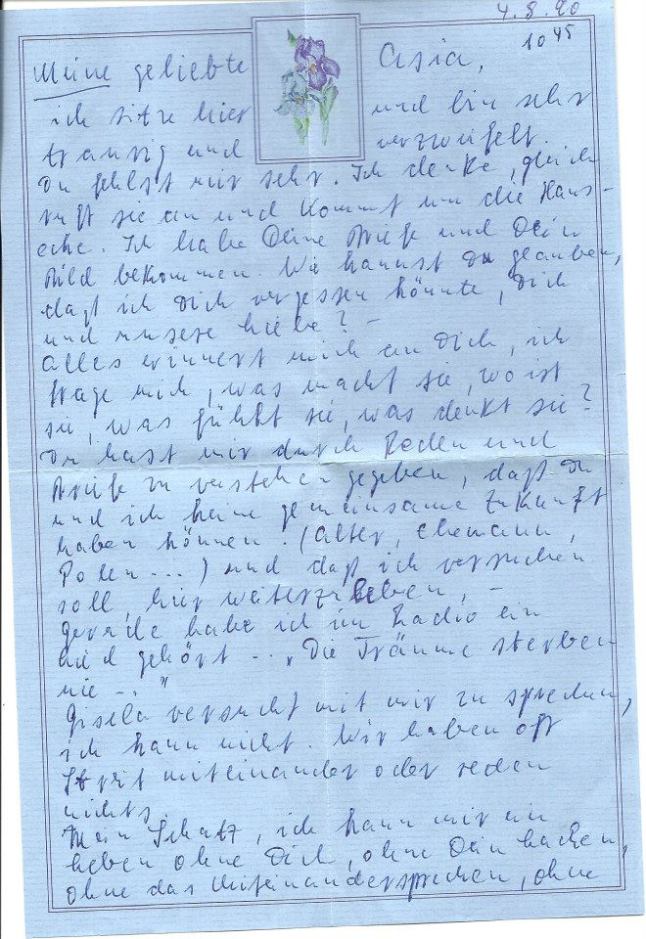 4.8.90
10 45
Meine geliebte Asia,
ich sitze hier und bin sehr
traurig und verzweifelt.
Du fehlst mir sehr. Ich denke, gleich
ruft sie an und kommt um die Haus-
ecke. Ich habe Deine Briefe und Dein
Bild bekommen. Wie kannst Du glauben,
daß ich Dich vergessen könnte, Dich
und unsere Liebe? –
Alles erinnert mich an Dich, ich
frage mich, was macht sie, wo ist
sie, was fühlt sie, was denkt sie?
Du hast mir durch Reden und
Briefe zu verstehen gegeben, daß Du
und ich keine gemeinsame Zukunft
haben können. (Alter, Ehemann,
Polen ...) und daß ich versuchen
soll, hier weiterzuleben, –
Gerade habe ich im Radio ein
Lied gehört ... „Die Träume sterben
nie ..."
Gisela versucht mit mir zu sprechen,
ich kann nicht. Wir haben oft
Streit miteinander oder reden
nichts.
Mein Schatz, ich kann mir ein
Leben ohne Dich, ohne Dein Lachen,
ohne das Miteinandersprechen, ohne